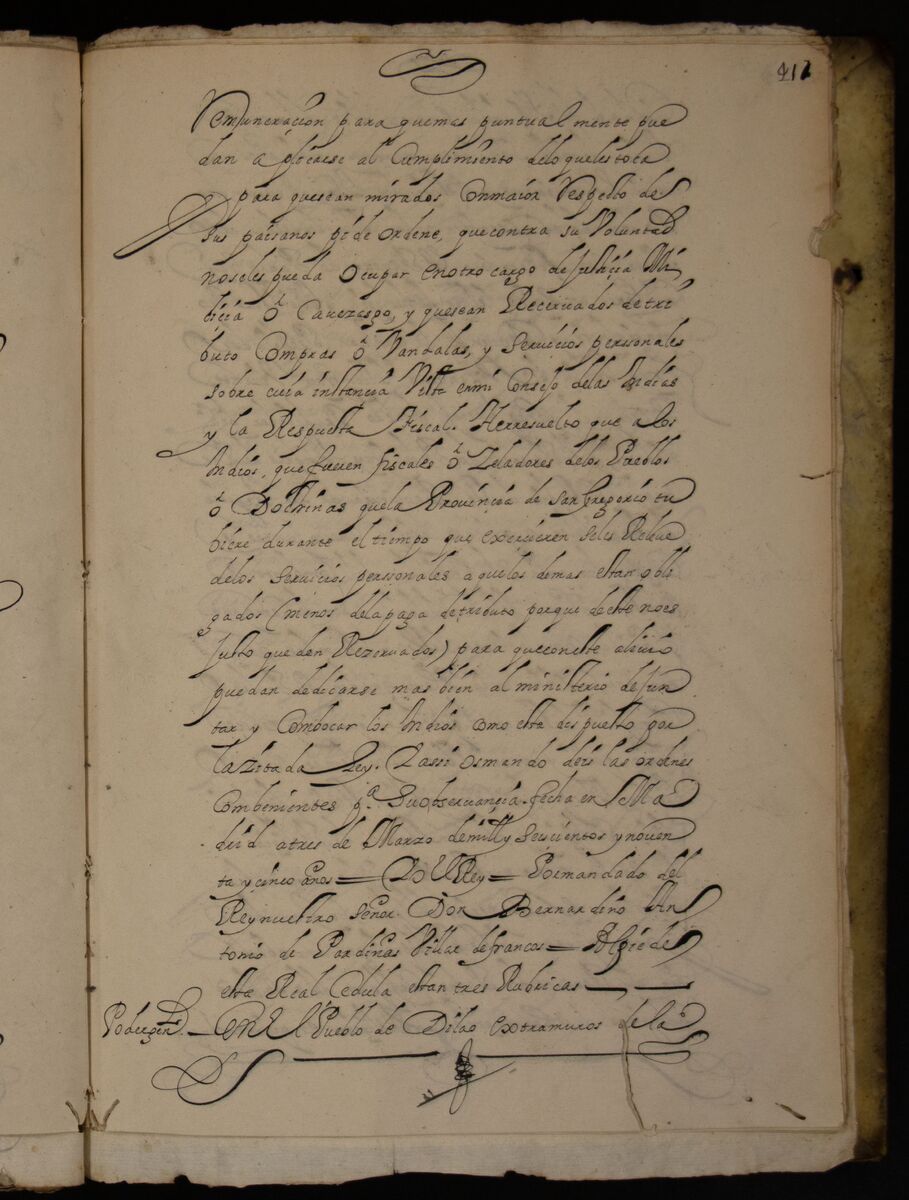 412
Remuneracion para quemas puntualmente pue
dan aplicarse al Cumplimiento delo queles toca
para quesean mirados Conmaior Respecto de
sus paisanos pide ordene, quecontra su Voluntad
noseles pueda ocupar enotro cargo deJusticia Mi
licia ô Cavezasgo, y quesean Recervados detri
buto Compras ô Vandalas, y Servicios perssonales
sobre cuia instancia Vista enmi Consejo delas Indias
y la Respuesta fiscal. Herresuelto que a los
Indios, que fueren fiscales ô Zeladores delos Pueblos
ô Doctrinas quela Provincia de san Gregorio tu
biere durante el tiempo que exercieren seles Releve
delos servicios perssonales a quelos demas estan obli
gados (menos dela paga detributo porque deste noes
justo que den Rezervados) para queconeste alivio
puedan dedicarse mas bien al ministerio dejun
tar y Combocar los Indios como esta dispuesto por
la Zitada Ley. Y assi osmando deis las ordenes
Combenientes pª. su observancia. fecha en Ma
drid atres de Marzo demill y Seiscientos y noven
ta y cinco años = Yo el Rey = Por mandado del
Rey nuestro señor Don Bernardino An
tonio de Pardiñas Villar defrancos = Al pie de
esta Real Cedula estan tres Rubricas
Poder genl. En el Pueblo de Dilao extramuros de la